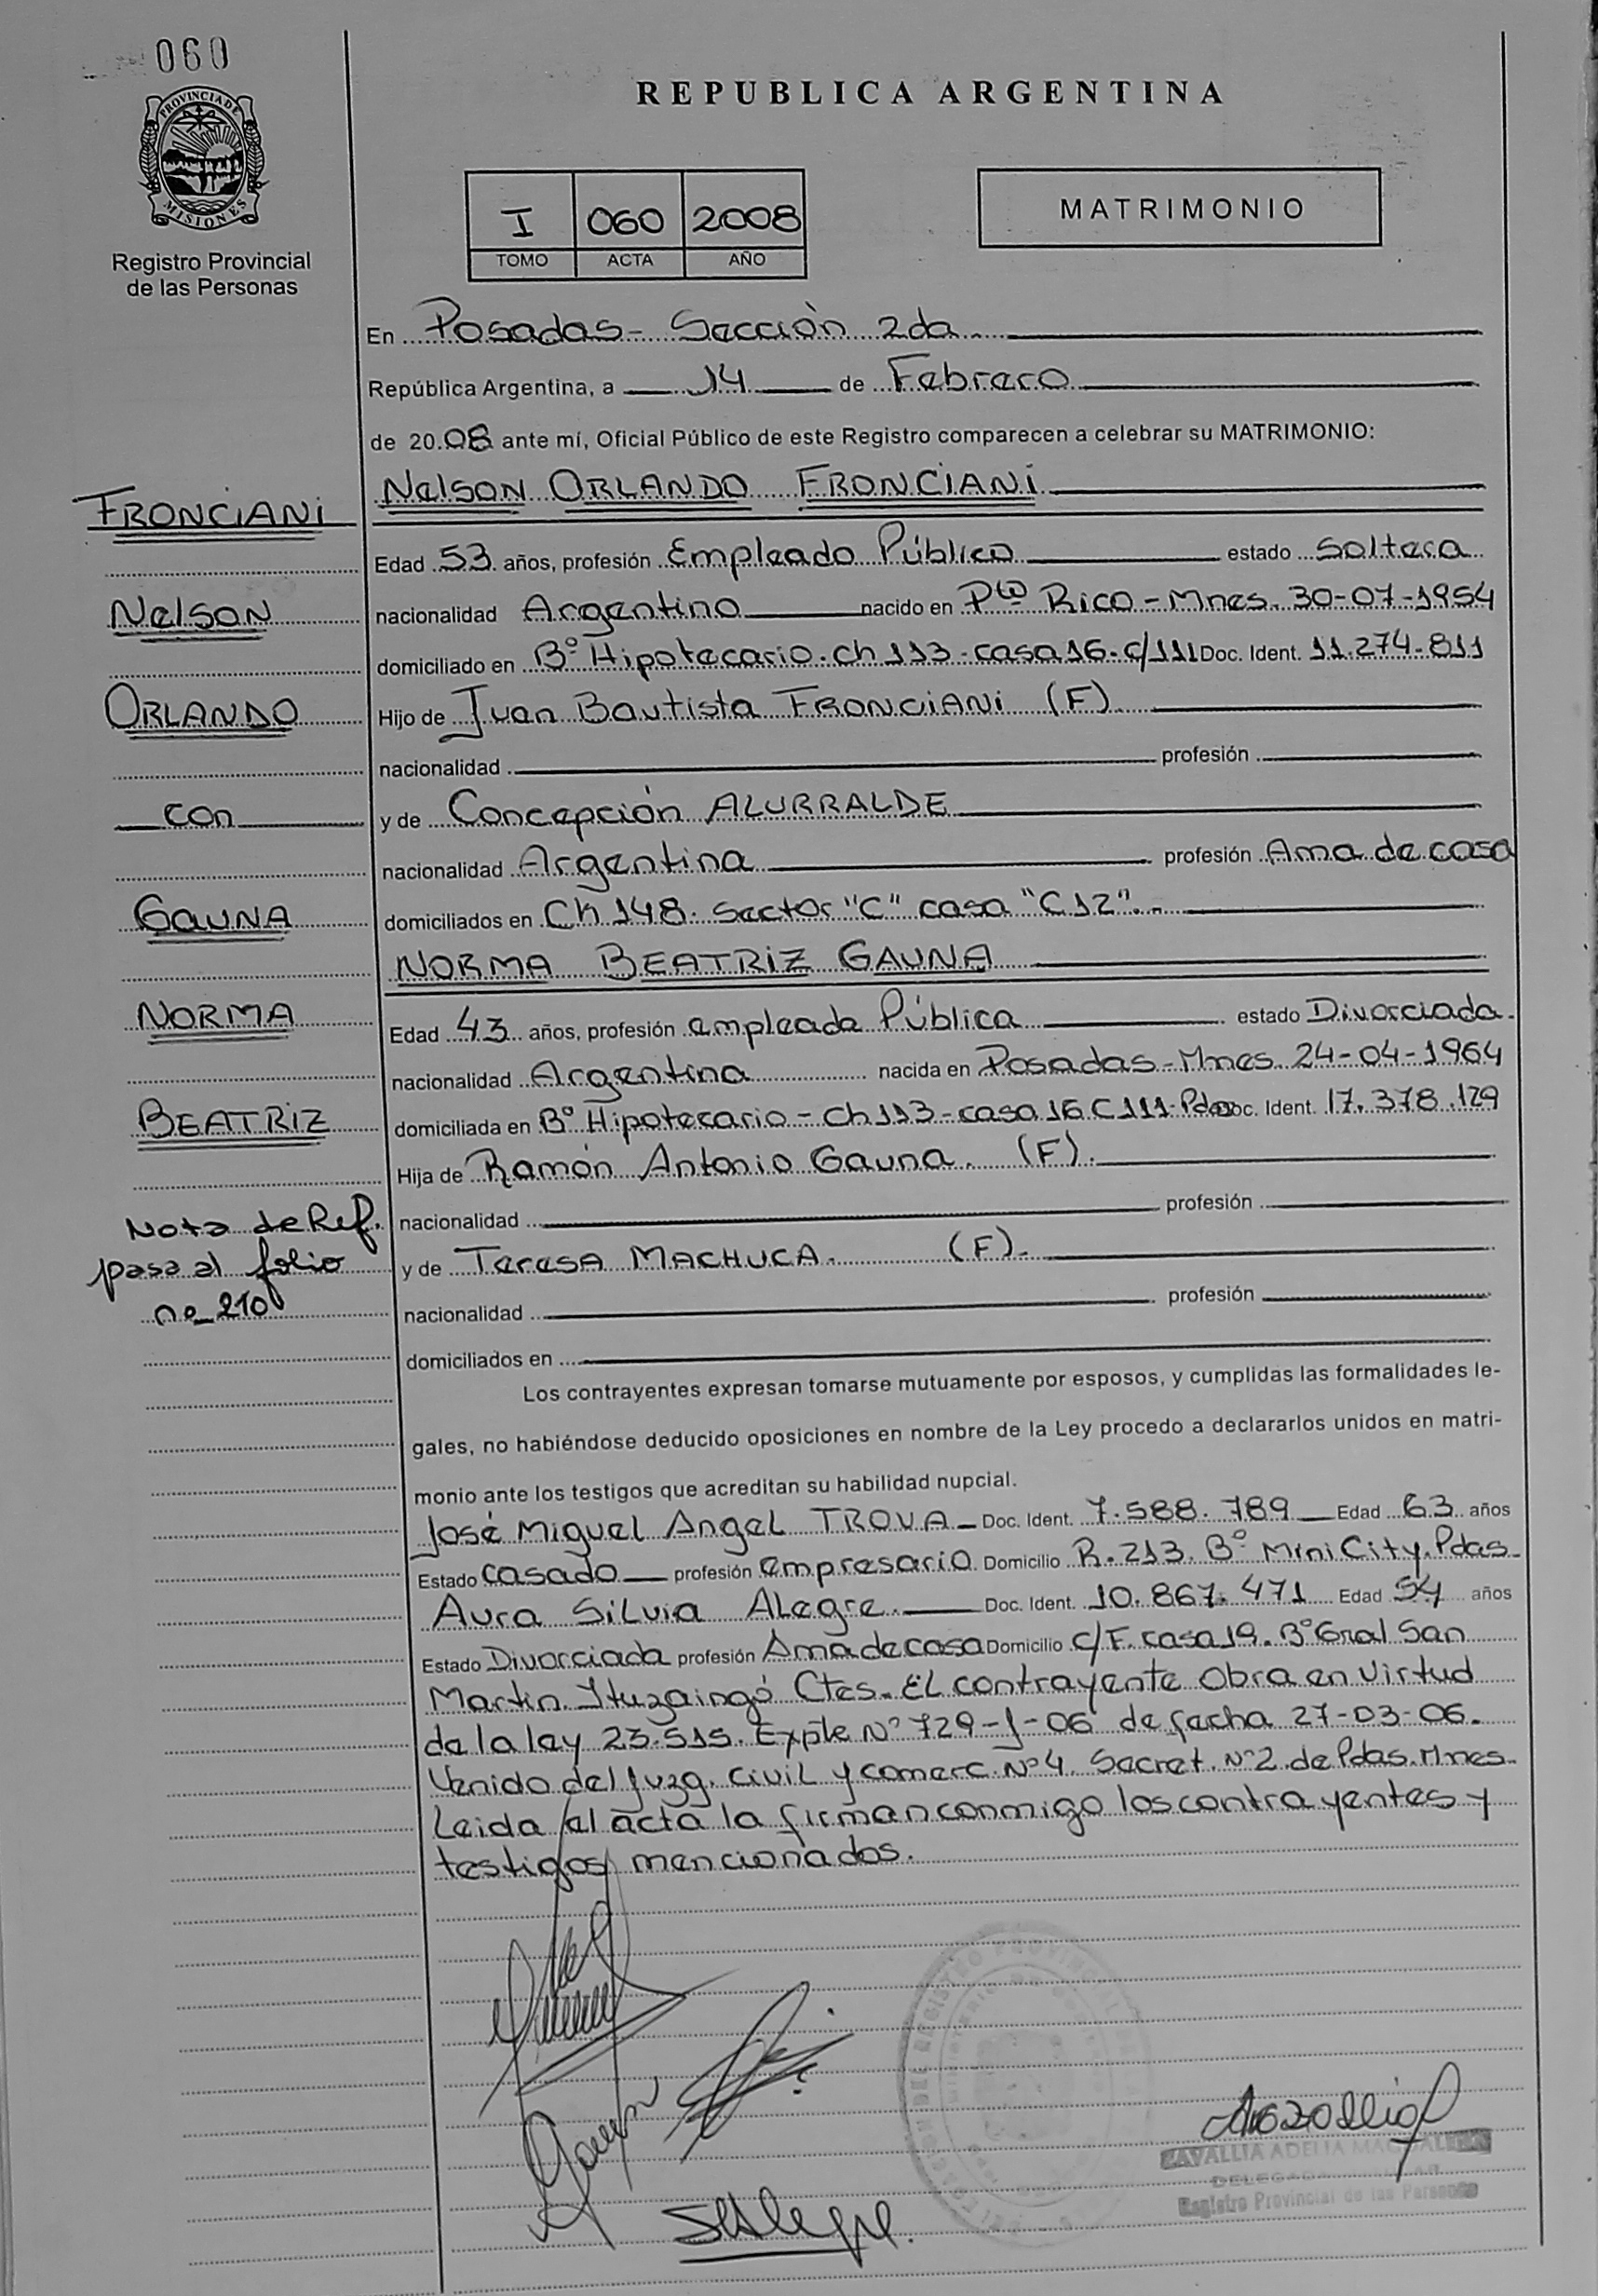 060
PROVINCIA DE
MISIONES
Registro Provincial
de las Personas
REPUBLICA ARGENTINA
I 060 2008
TOMO ACTA AÑO
MATRIMONIO
En Posadas- Sección 2da
República Argentina, a 14 de Febrero
de 2008 ante mí, Oficial Público de este Registro comparecen a celebrar su MATRIMONIO:
Nelson ORLANDO FRONCIANI
Edad 53 años, profesión Empleado Público estado Soltero
nacionalidad Argentino nacido en Pto Rico - Mnes. 30-07-1954
domiciliado en B° Hipotecario. ch 113 - casa 16. c/111 Doc. Ident. 11.274.811
Hijo de Juan Bautista FRONCIANI (F)
nacionalidad profesión
y de Concepción ALURRALDE
nacionalidad Argentina profesión Ama de casa
domiciliados en Ch 148. Sector "C" casa "C12".-
NORMA BEATRIZ GAUNA
Edad 43 años, profesión empleada Pública estado Divorciada.
nacionalidad Argentina nacida en Posadas - Mnes. 24-04-1964
domiciliada en B° Hipotecario - Ch 113 - casa 16 C 111- Pdas Doc. Ident. 17.378.129
Hija de Ramón Antonio Gauna. (F).
nacionalidad profesión
y de Teresa MACHUCA. (F).
nacionalidad profesión
domiciliados en
Los contrayentes expresan tomarse mutuamente por esposos, y cumplidas las formalidades le-
gales, no habiéndose deducido oposiciones en nombre de la Ley procedo a declararlos unidos en matri-
monio ante los testigos que acreditan su habilidad nupcial.
José Miguel Angel TROVA Doc. Ident. 7.588.789 Edad 63 años
Estado Casado profesión empresario Domicilio R. 213. B° Mini City. Pdas.
Aura Silvia Alegre. Doc. Ident. 10.867.471 Edad 54 años
Estado Divorciada profesión Ama de casa Domicilio c/F. casa 19. B° Gral San
Martín. Ituzaingó Ctes. El contrayente obra en virtud
de la ley 23.515. Expte N° 729-J-06 de fecha 27-03-06.
Venido del Juzg. Civil y Comerc. N°4. Secret. N°2. de Pdas. Mnes.
Leida el acta la firman conmigo los contrayentes y
testigos mencionados.
FRONCIANI
Nelson
ORLANDO
con
GAUNA
NORMA
BEATRIZ
Nota de Ref.
pasa al folio
no 210
SAlegre.
ZAVALLIA ADELIA MAGDALENA
DELEGADA
Registro Provincial de las Personas